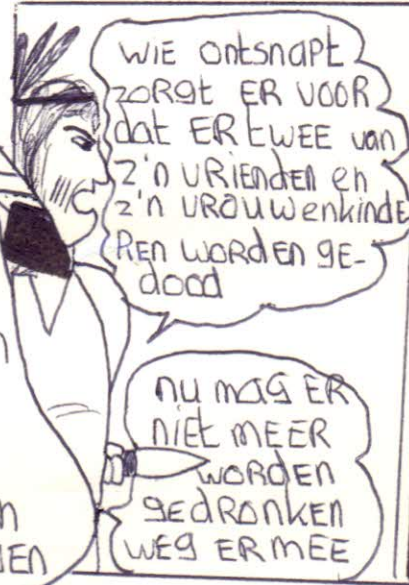 WIE ontsnapt
zoRgt ER VOOR
dat ER twEE van
z'n VRIEnDEn En
z'n VROUWEnkindE
REn WORdEn gE-
dood
nu mag ER
niEt mEER
WORDEn
gEdROnkEn
WEg ER mEE
n
n
EN